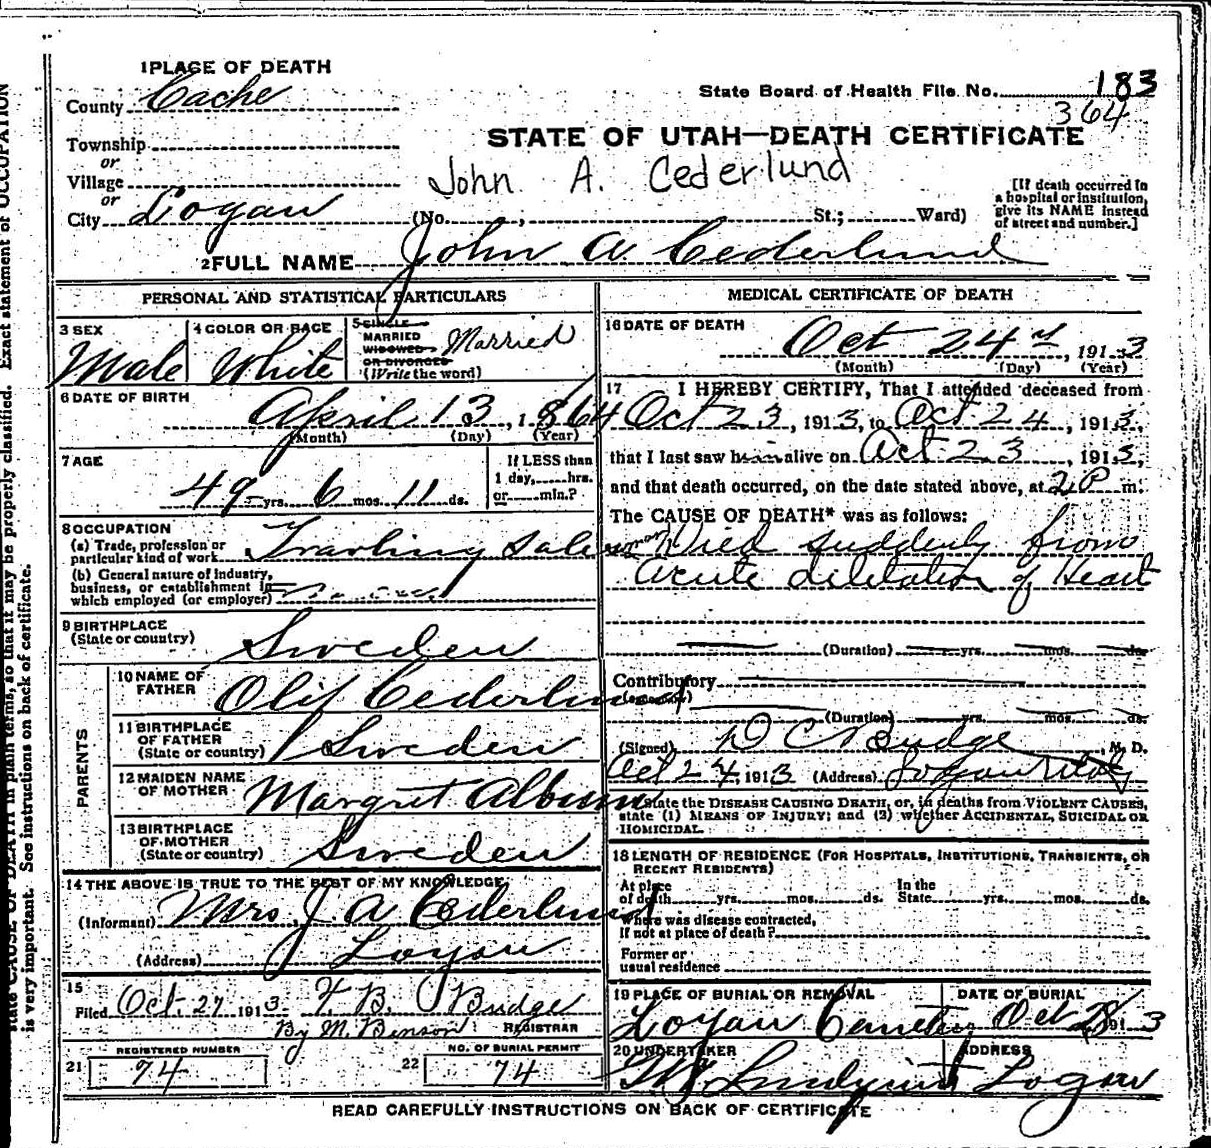 1 PLACE OF DEATH
County Cache
State Board of Health File No. 183
364
Township
or
Village
or
City Logan
STATE OF UTAH—DEATH CERTIFICATE
John A. Cederlund
(No. , St.; Ward)
[If death occurred in
a hospital or institution,
give its NAME instead
of street and number.]
2 FULL NAME John A Cederlund
PERSONAL AND STATISTICAL PARTICULARS
3 SEX
Male
4 COLOR OR RACE
White
5 SINGLE
MARRIED
WIDOWED
OR DIVORCED
(Write the word)
Married
6 DATE OF BIRTH
April 13, 1864
(Month) (Day) (Year)
7 AGE
49 yrs. 6 mos. 11 ds.
If LESS than
1 day, hrs.
or min.?
8 OCCUPATION
(a) Trade, profession or
particular kind of work Travling Salesman
(b) General nature of industry,
business, or establishment in
which employed (or employer)
9 BIRTHPLACE
(State or country)
Sweden
PARENTS
10 NAME OF
FATHER
Olif Cederlund
11 BIRTHPLACE
OF FATHER
(State or country)
Sweden
12 MAIDEN NAME
OF MOTHER
Margret
13 BIRTHPLACE
OF MOTHER
(State or country)
Sweden
14 THE ABOVE IS TRUE TO THE BEST OF MY KNOWLEDGE
(Informant) Mrs J A Cederlund
(Address) Logan
15
Filed Oct. 27 1913 F. B. Budge
By M. Benson REGISTRAR
21 REGISTERED NUMBER
74
22 NO. OF BURIAL PERMIT
74
MEDICAL CERTIFICATE OF DEATH
16 DATE OF DEATH
Oct 24, 1913
(Month) (Day) (Year)
17 I HEREBY CERTIFY, That I attended deceased from
Oct 23, 1913, to Oct 24, 1913,
that I last saw him alive on Oct 23, 1913,
and that death occurred, on the date stated above, at 2 P m.
The CAUSE OF DEATH* was as follows:
Died suddenly from
acute diletation of Heart
(Duration) yrs. mos. ds.
Contributory
(Duration) yrs. mos. ds.
(Signed) D C Budge, M. D.
Oct 24, 1913 (Address) Logan Utah
State the DISEASE CAUSING DEATH, or, in deaths from VIOLENT CAUSES,
state (1) MEANS OF INJURY; and (2) whether ACCIDENTAL, SUICIDAL OR
HOMICIDAL.
18 LENGTH OF RESIDENCE (FOR HOSPITALS, INSTITUTIONS, TRANSIENTS, OR
RECENT RESIDENTS)
At place
of death yrs. mos. ds.
In the
State yrs. mos. ds.
Where was disease contracted,
If not at place of death?
Former or
usual residence
19 PLACE OF BURIAL OR REMOVAL
Logan Cemetery
DATE OF BURIAL
Oct 28 1913
20 UNDERTAKER
Lindquist
ADDRESS
Logan
READ CAREFULLY INSTRUCTIONS ON BACK OF CERTIFICATE
state CAUSE OF DEATH in plain terms, so that it may be properly classified. Exact statement of OCCUPATION
is very important. See instructions on back of certificate.